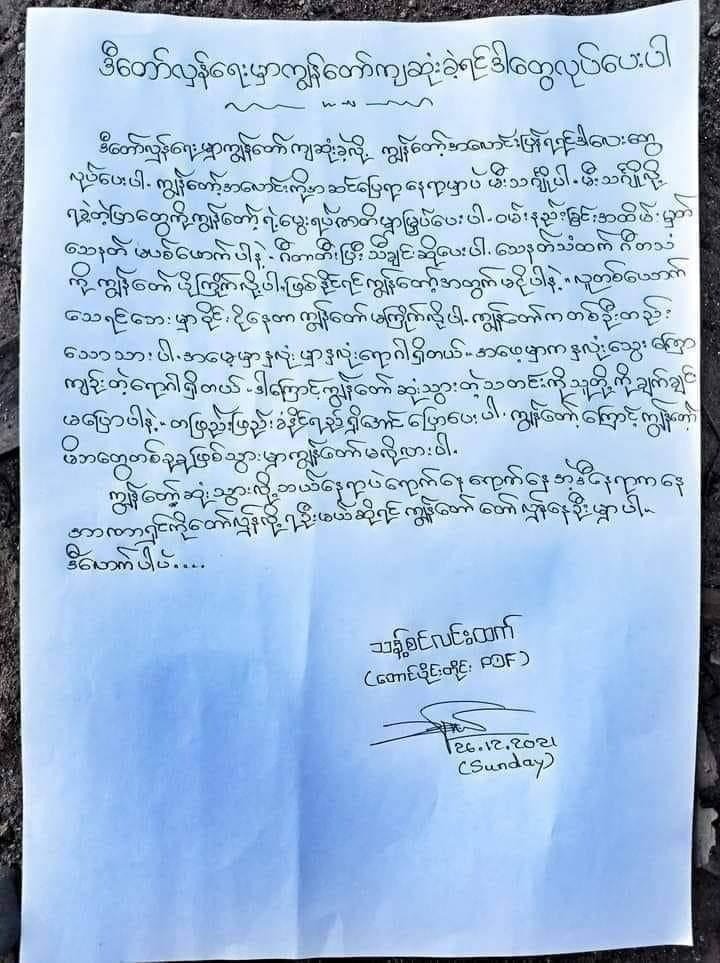 ဒီတော်လှန်ရေးမှာကျွန်တော်ကျဆုံးခဲ့ရင်ဒါတွေလုပ်ပေးပါ
ဒီတော်လှန်ရေးမှာကျွန်တော်ကျဆုံးခဲ့လို့ ကျွန်တော့်အလောင်းပြန်ရရင်ဒါလေးတွေ
လုပ်ပေးပါ. ကျွန်တော့်အလောင်းကိုအဆင်ပြေရာနေရာမှာပဲ မီးသင်္ဂြိုဟ်ပါ. မီးသင်္ဂြိုဟ်လို့
ရခဲ့တဲ့ပြာတွေကိုကျွန်တော့်ရဲ့မွေးရပ်ဇာတိမှာမြှုပ်ပေးပါ. ဝမ်းနည်းခြင်းအထိမ်းမှတ်
သေနတ် မပစ်ဖောက်ပါနဲ့. ဂီတာတီးပြီး သီချင်းဆိုပေးပါ. သေနတ်သံထက် ဂီတသံ
ကို ကျွန်တော် ပိုကြိုက်လို့ပါ. ဖြစ်နိုင်ရင်ကျွန်တော့်အတွက်မငိုပါနဲ့. လူတစ်ယောက်
သေရင်ဘေးမှာဝိုင်းငိုနေတာကျွန်တော်မကြိုက်လို့ပါ. ကျွန်တော်ကတစ်ဦးတည်း
သောသားပါ. အမေ့မှာနှလုံးမှာနှလုံးရောဂါရှိတယ်. အဖေ့မှာကနှလုံးသွေးကြော
ကျဉ်းတဲ့ရောဂါရှိတယ်. ဒါကြောင့်ကျွန်တော်ဆုံးသွားတဲ့သတင်းကိုသူတို့ကိုချက်ချင်း
မပြောပါနဲ့. တဖြည်းဖြည်းခံနိုင်ရည်ရှိအောင်ပြောပေးပါ. ကျွန်တော့်ကြောင့်ကျွန်တော့်
မိဘတွေတစ်ခုခုဖြစ်သွားမှာကျွန်တော်မလိုလားပါ.
ကျွန်တော်ဆုံးသွားလို့ဘယ်နေရာပဲရောက်နေရောက်နေအဲ့ဒီနေရာကနေ
အာဏာရှင်ကိုတော်လှန်လို့ရဦးမယ်ဆိုရင်ကျွန်တော်တော်လှန်နေဦးမှာပါ.
ဒီလောက်ပါပဲ....
သန့်စင်လင်းထက်
(တောင်ပိုင်းတိုင်း PDF)
26.12.2021
(Sunday)